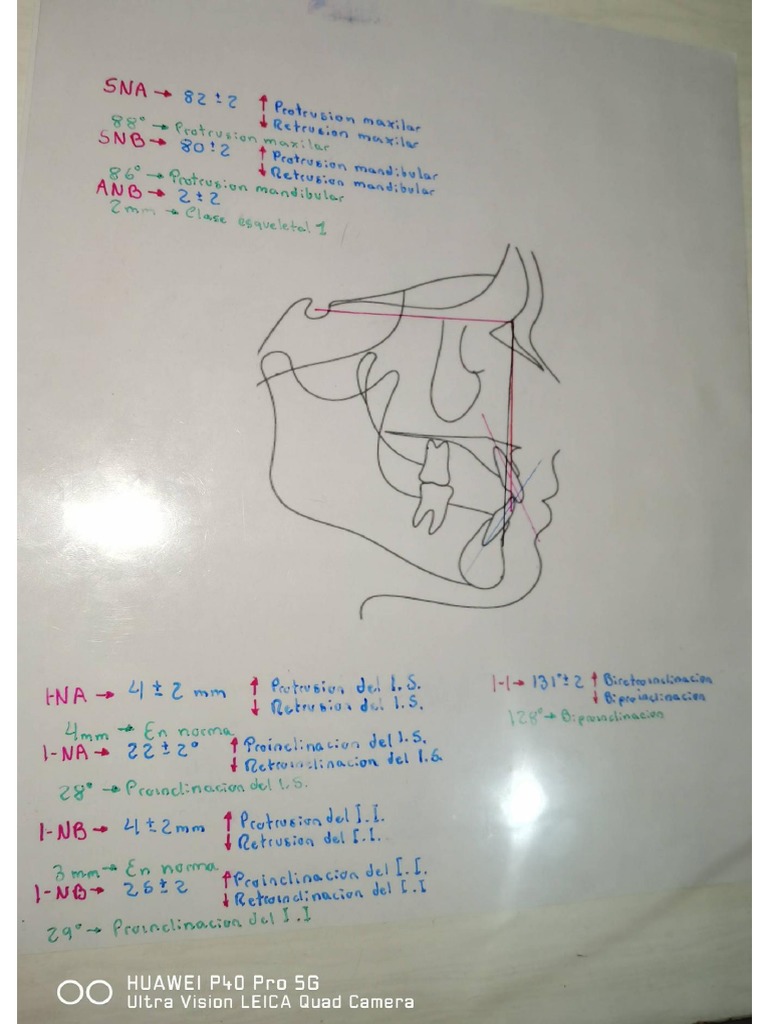 SNA → 82 ± 2 ↑ Protrusion maxilar
↓ Retrusion maxilar
88° → Protrusion maxilar
SNB → 80 ± 2 ↑ Protrusion mandibular
↓ Retrusion mandibular
86° → Protrusion mandibular
ANB → 2 ± 2
2mm → Clase esqueletal 1
1-NA → 4 ± 2 mm ↑ Protrusion del I.S.
↓ Retrusion del I.S.
4mm → En norma
1-NA → 22 ± 2° ↑ Proinclinacion del I.S.
↓ Retroinclinacion del I.S.
28° → Proinclinacion del I.S.
1-NB → 4 ± 2mm ↑ Protrusion del I.I.
↓ Retrusion del I.I.
3mm → En norma
1-NB → 26 ± 2 ↑ Proinclinacion del I.I.
↓ Retroinclinacion del I.I
29° → Proinclinacion del I.I
1-1 → 131° ± 2 ↑ Biretroinclinacion
↓ Biproinclinacion
128° → Biproinclinacion
HUAWEI P40 Pro 5G
Ultra Vision LEICA Quad Camera